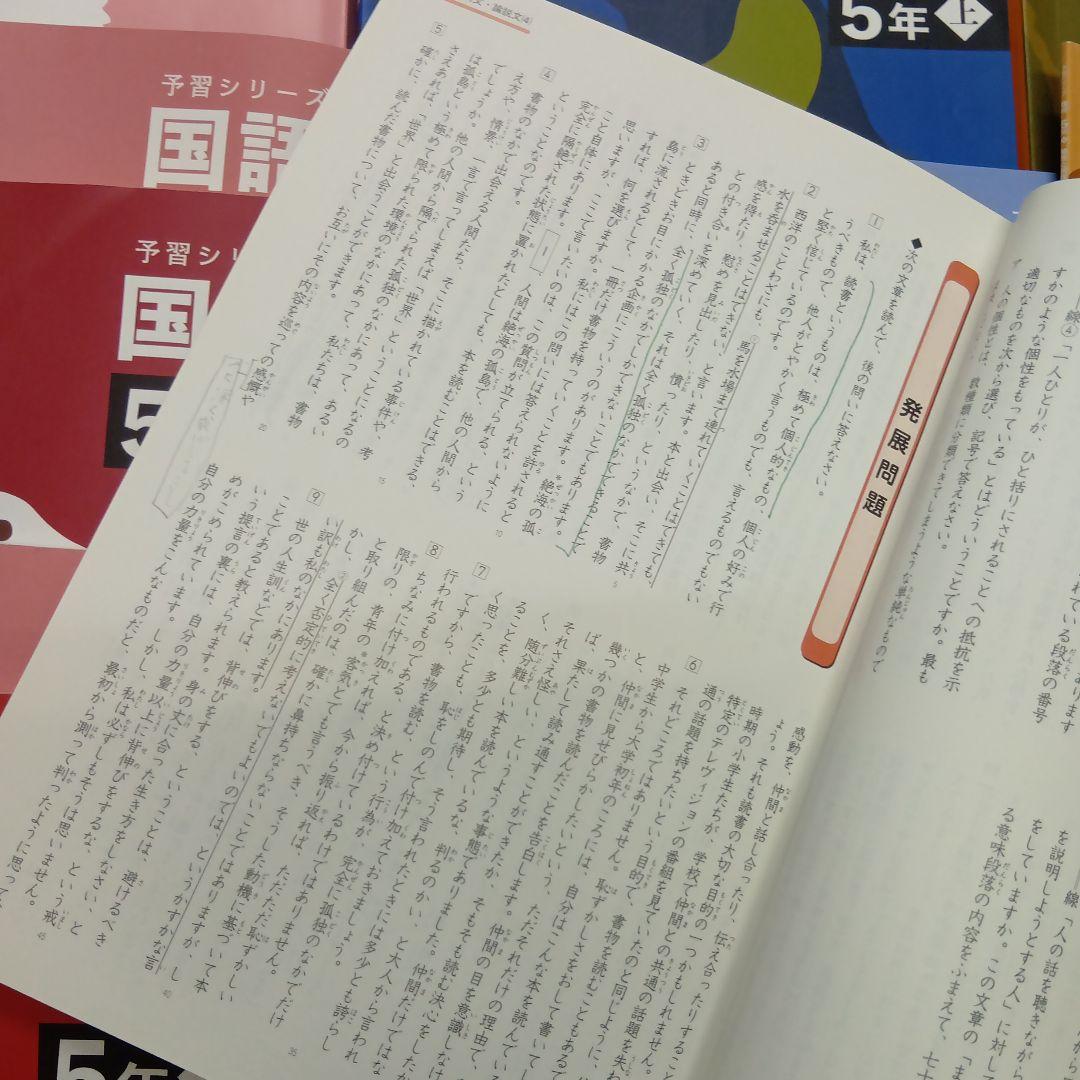 5年上
予習シリーズ
国語
予習シリ
国
5
5年
・論説文④
発展問題
◆次の文章を読んで、後の問いに答えなさい。
1 私は、読書というものは、極めて個人的なもの、個人の好みで行
うべきもので、他人がとやかく言うものでも、言えるものでもない
と堅く信じているのです。
2 西洋のことわざにも、馬を水場まで連れていくことはできても、
水を呑ませることはできない、と言います。本と出会い、そこに共
感を得たり、慰めを見出したり、憤ったり、というなかで、書物
との付き合いを深めていく、それは全く孤独のなかでできることで
あると同時に、全く孤独のなかでしかできないことでもあります。
3 ときどきお目にかかる企画にこういうのがあります。*絶海の孤
島に流されるとして、一冊だけ書物を持っていくことを許されると
すれば、何を選びますか。私にはこの問いには答えられないように
思いますが、ここで言いたいのは、この質問が立てられる、という
こと自体にあります。1 人間は絶海の孤島で、他の人間から
完全に隔絶された状態に置かれたとしても、本を読むことはできる、
ということなのです。
4 書物のなかで出会える人間たち、そこに描かれている事件や、考
え方や、情景、一言で言ってしまえば「世界」ということになるの
でしょうか。他の人間から隔てられた孤独のなかにあって、あるい
は孤島という極めて限られた環境のなかにあって、私たちは、書物
さえあれば、「世界」と出会うことができます。
5 確かに、読んだ書物について、お互いにその内容を巡っての感慨や
感動を、仲間と話し合ったり、伝え合ったりすること
よう。それも読書の大切な目的の一つかもしれません。
時期の小学生たちが、学校で仲間との共通の話題を失わ
特定のテレヴィジョンの番組を見ていたのと同じように、
通の話題を持ちたいという目的で、書物を読むこともあるで
6 それどころではありません。恥ずかしさをおして書いて
中学生から大学初年のころには、自分はこんな本を読んでい
と、仲間に見せびらかしたいという、ただそれだけの理由で、
幾つかの書物を読んだことを告白します。仲間の目を意識し
ば、果たして読み通すことができたか、そもそも読む決心をした
それさえ怪しい、というような事態でありました。仲間だけではな
く、随分難しい本を読んでいるな、判るのかい、と大人から言われ
ることを、多少とも期待し、そう言われたときには多少とも誇らし
く思ったことも、恥をしのんで付け加えておきましょう。
7 ですから、書物を読む、という行為が、完全に孤独のなかでだけ
行われるものである、と決め付けているわけではありません。
8 ちなみに付け加えれば、今から振り返れば、ただただ恥ずかしい
限りの、青年の*客気とでも言うべき、そうした動機に基づいて本
と取り組んだのは、確かに鼻持ちならないことではありますが、し
かし、全く否定的に考えないでもよいのでは、というかすかな言
い訳も私のなかにあります。
9 世の人生訓などでは、背伸びをする、ということは、避けるべき
ことであると教えられます。身の丈に合った生き方をしなさい、と
いう提言の裏には、自分の力量以上に背伸びをするな、という戒
めがこめられています。しかし、私は必ずしもそうは思いません。
自分の力量をこんなものだと、最初から測って判ったように思って
すかのような個性をもっている」とはどういうことですか。最も
適切なものを次から選び、記号で答えなさい。